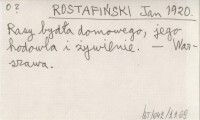 O?
ROSTAFIŃSKI Jan 1920.
Rasy bydła domowego, jego
hodowla i żywienie. — War-
szawa.